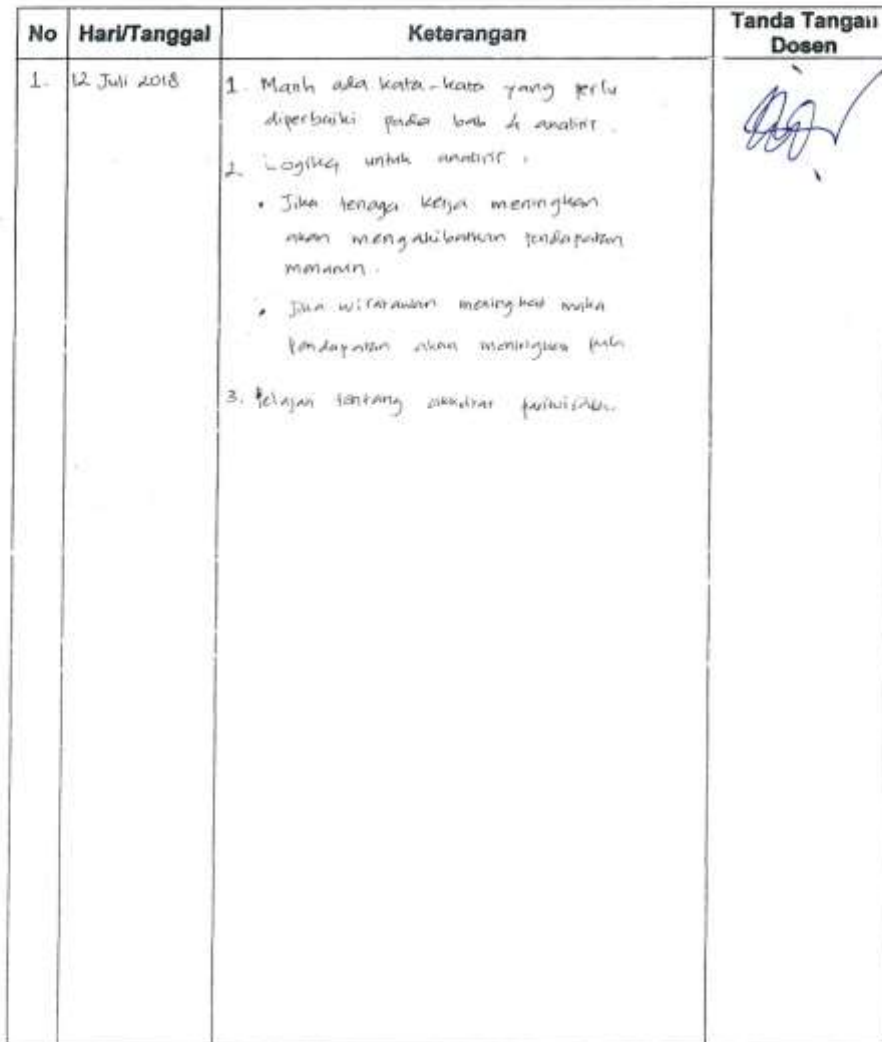 No Hari/Tanggal Keterangan Tanda Tangan Dosen
1. 12 Juli 2018 1. Masih ada kata-kata yang perlu
diperbaiki pada bab 4 analisis.
2. Logika untuk analisis.
• Jika tenaga kerja meningkat
akan mengakibatkan pendapatan
• Jika wisatawan meningkat maka
pendapatan akan meningkat pula
3. Pelajari tentang